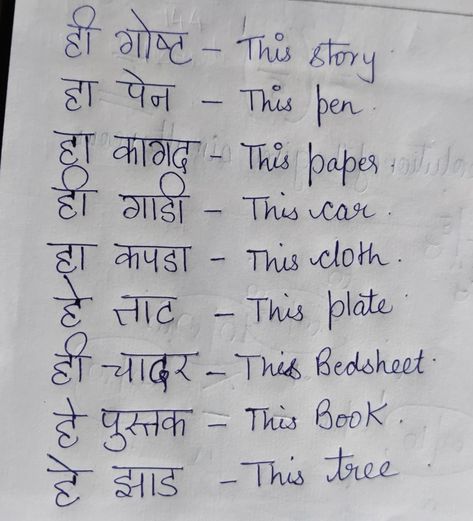 ही गोष्ट - This story
हा पेन - This pen.
हा कागद - This paper
ही गाडी - This car.
हा कपडा - This cloth.
हे ताट - This plate
ही चादर - This Bedsheet.
हे पुस्तक - This Book.
हे झाड - This tree